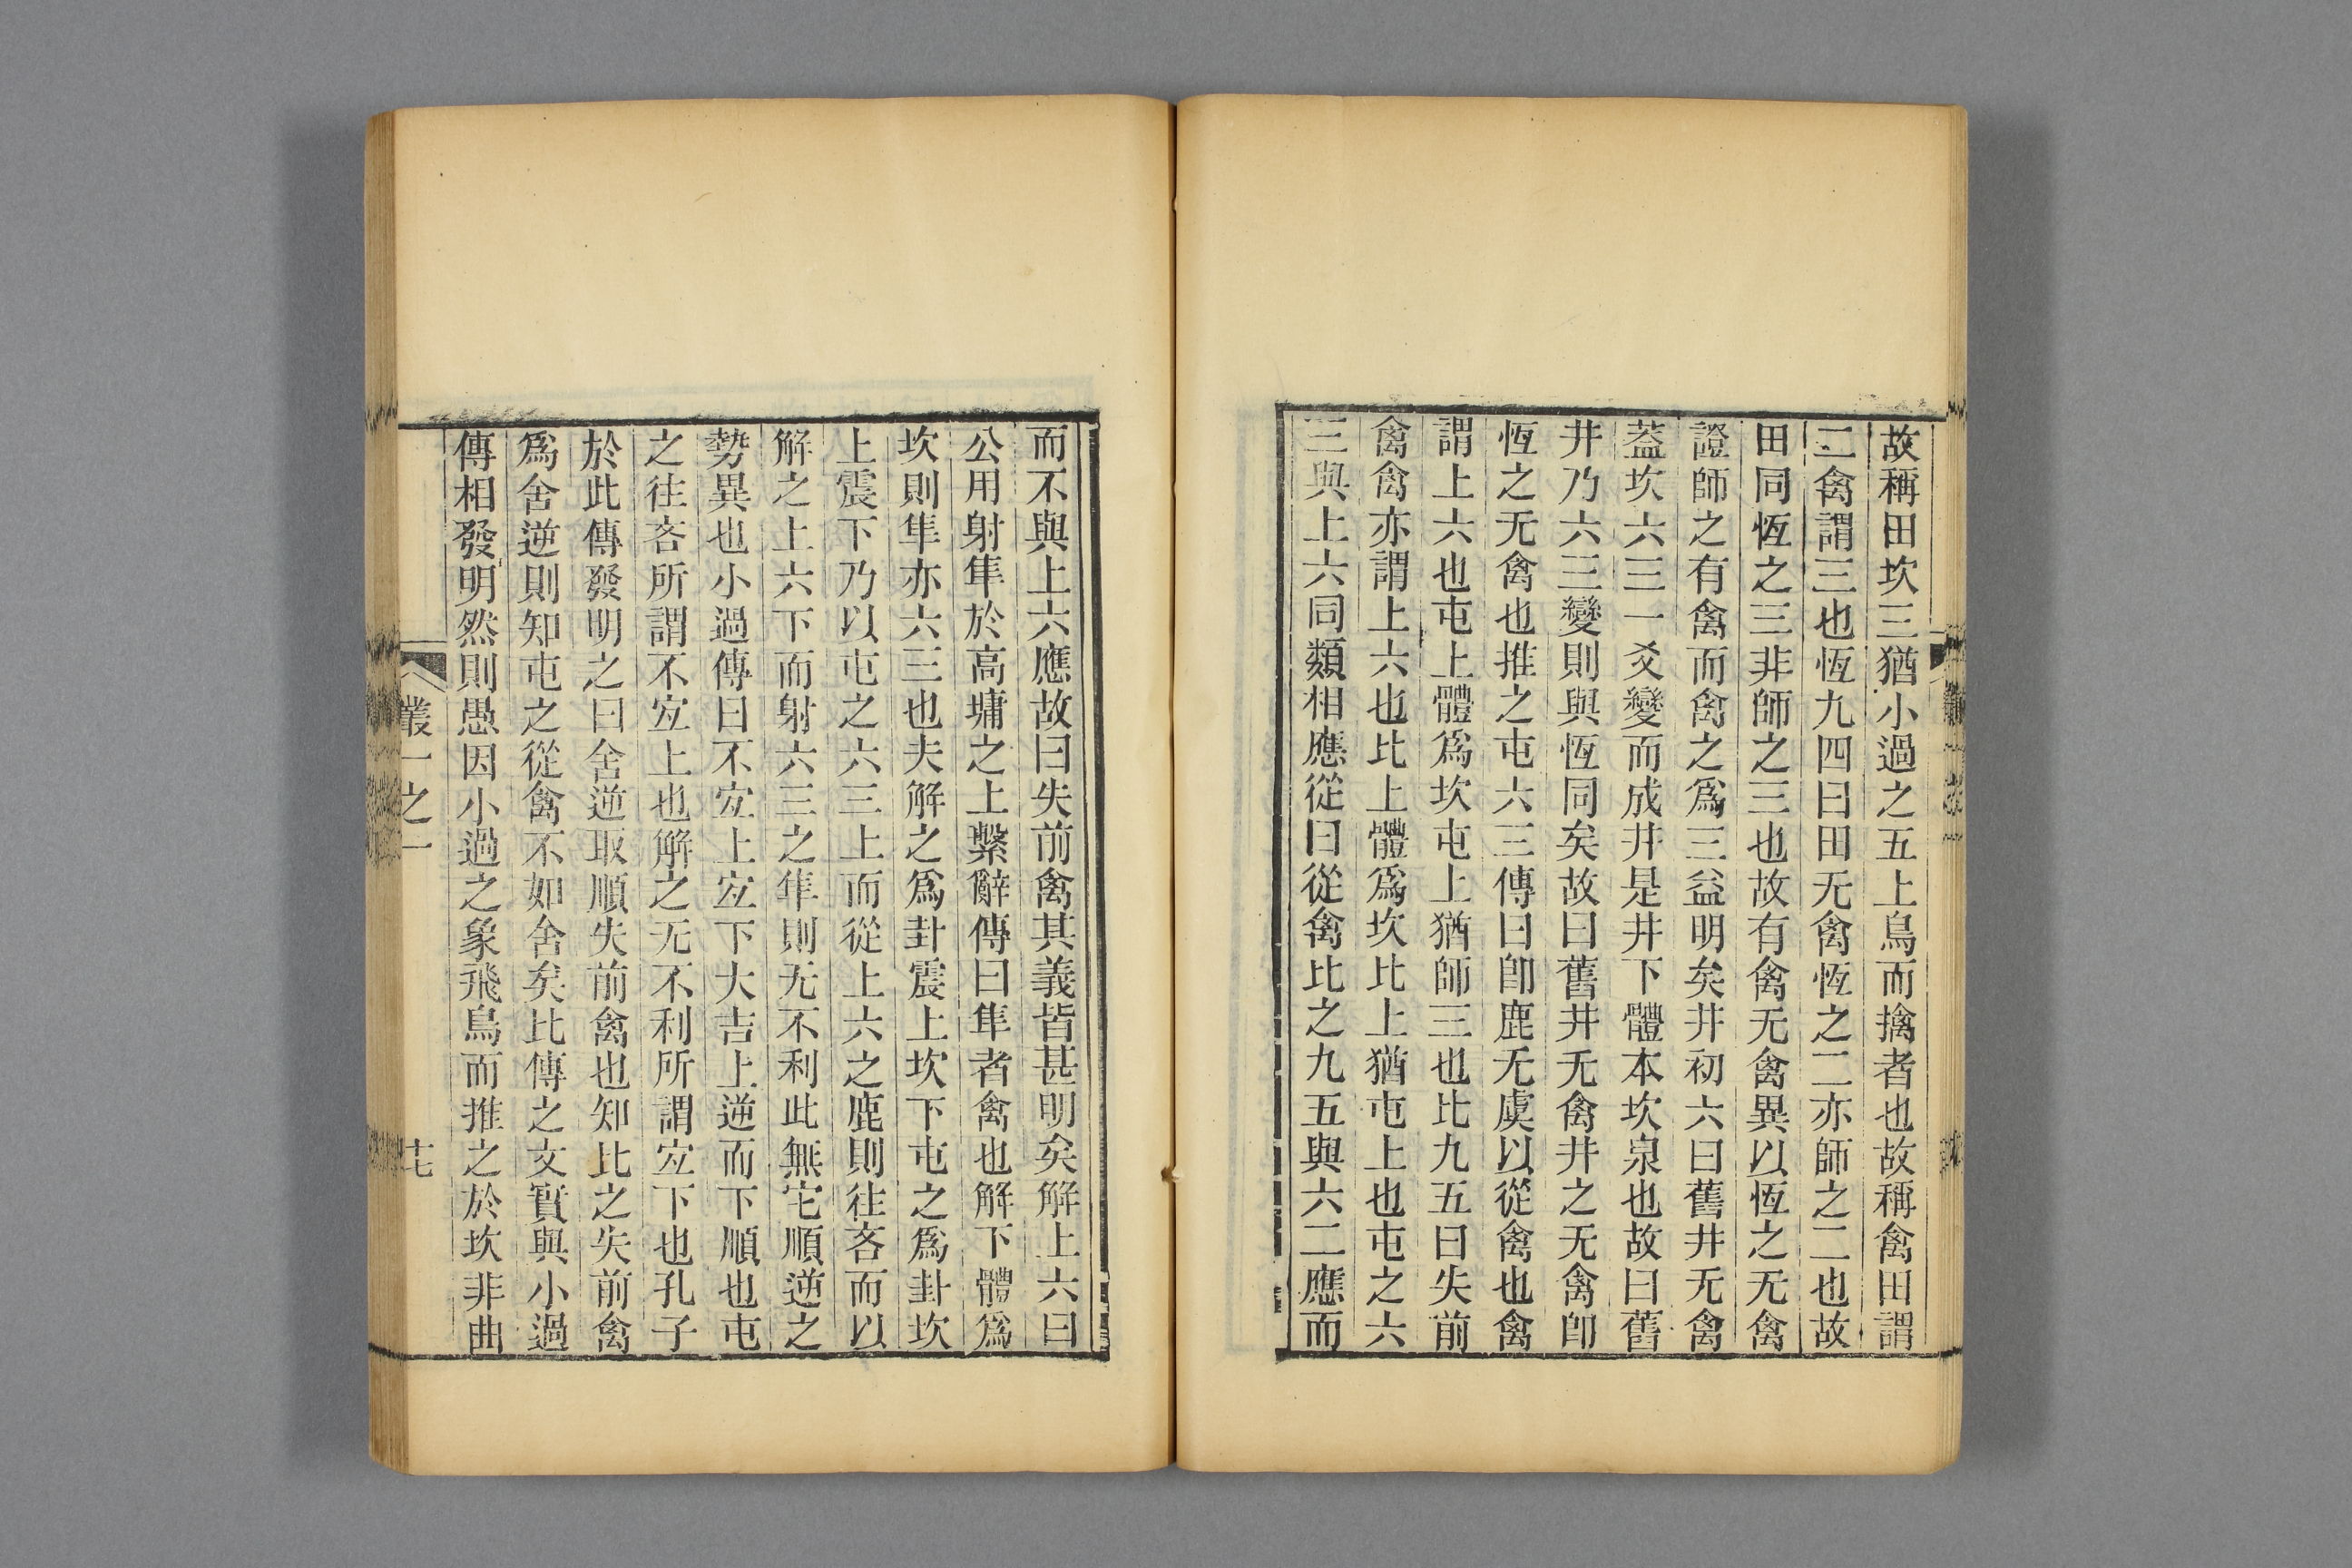 故稱田坎三猶小過之五上鳥而擒者也故稱禽田謂
二禽謂三也恆九四曰田无禽恆之二亦師之二也故
田同恆之三非師之三也故有禽无禽異以恆之无禽
證師之有禽而禽之爲三益明矣井初六曰舊井无禽
蓋坎六三一爻變而成井是井下體本坎泉也故曰舊
井乃六三變則與恆同矣故曰舊井无禽井之无禽卽
恆之无禽也推之屯六三傳曰卽鹿无虞以從禽也禽
謂上六也屯上體爲坎屯上猶師三也比九五曰失前
禽禽亦謂上六也比上體爲坎比上猶屯上也屯之六
三與上六同類相應從曰從禽比之九五與六二應而
而不與上六應故曰失前禽其義皆甚明矣解上六曰
公用射隼於高墉之上繫辭傳曰隼者禽也解下體爲
坎則隼亦六三也夫解之爲卦震上坎下屯之爲卦坎
上震下乃以屯之六三上而從上六之鹿則往吝而以
解之上六下而射六三之隼則无不利此無它順逆之
勢異也小過傳曰不宐上宐下大吉上逆而下順也屯
之往吝所謂不宐上也解之无不利所謂宐下也孔子
於此傳發明之曰舍逆取順失前禽也知比之失前禽
爲舍逆則知屯之從禽不如舍矣比傳之文實與小過
傳相發明然則愚因小過之象飛鳥而推之於坎非曲
叢一之一
十七